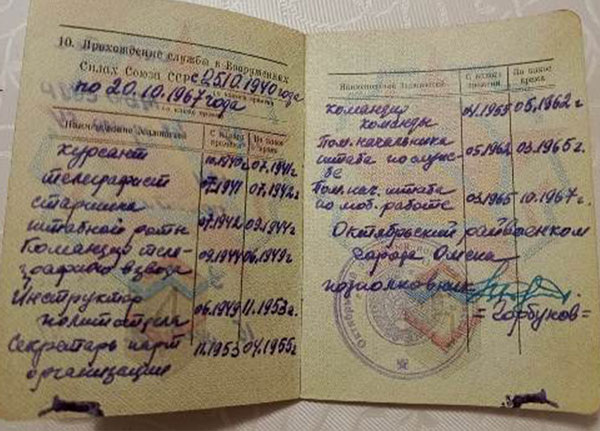 10. Прохождение службы в Вооруженных
Силах Союза ССР с 25.10.1940 года
по 20.10.1967 года
Наименование должностей
С какого времени
По какое время
курсант 10.1940г. 07.1941г.
телеграфист 07.1941 07.1942г.
старшина
штабной роты 07.1942 09.1944г
Командир теле-
графного взвода 09.1944 06.1949г.
Инструктор
политотдела 06.1949 11.1953г.
Секретарь парт 11.1953 04.1955г
организации
Наименование должностей
С какого времени
По какое время
командир 04.1955 05.1962г.
команды
Пом. начальника
штаба по служ- 05.1962 03.1965г.
бе
Пом. нач. штаба
по моб. работе 03.1965 10.1967г.
Октябрьский райвоенком
города Омска
подполковник
= Горбунов =